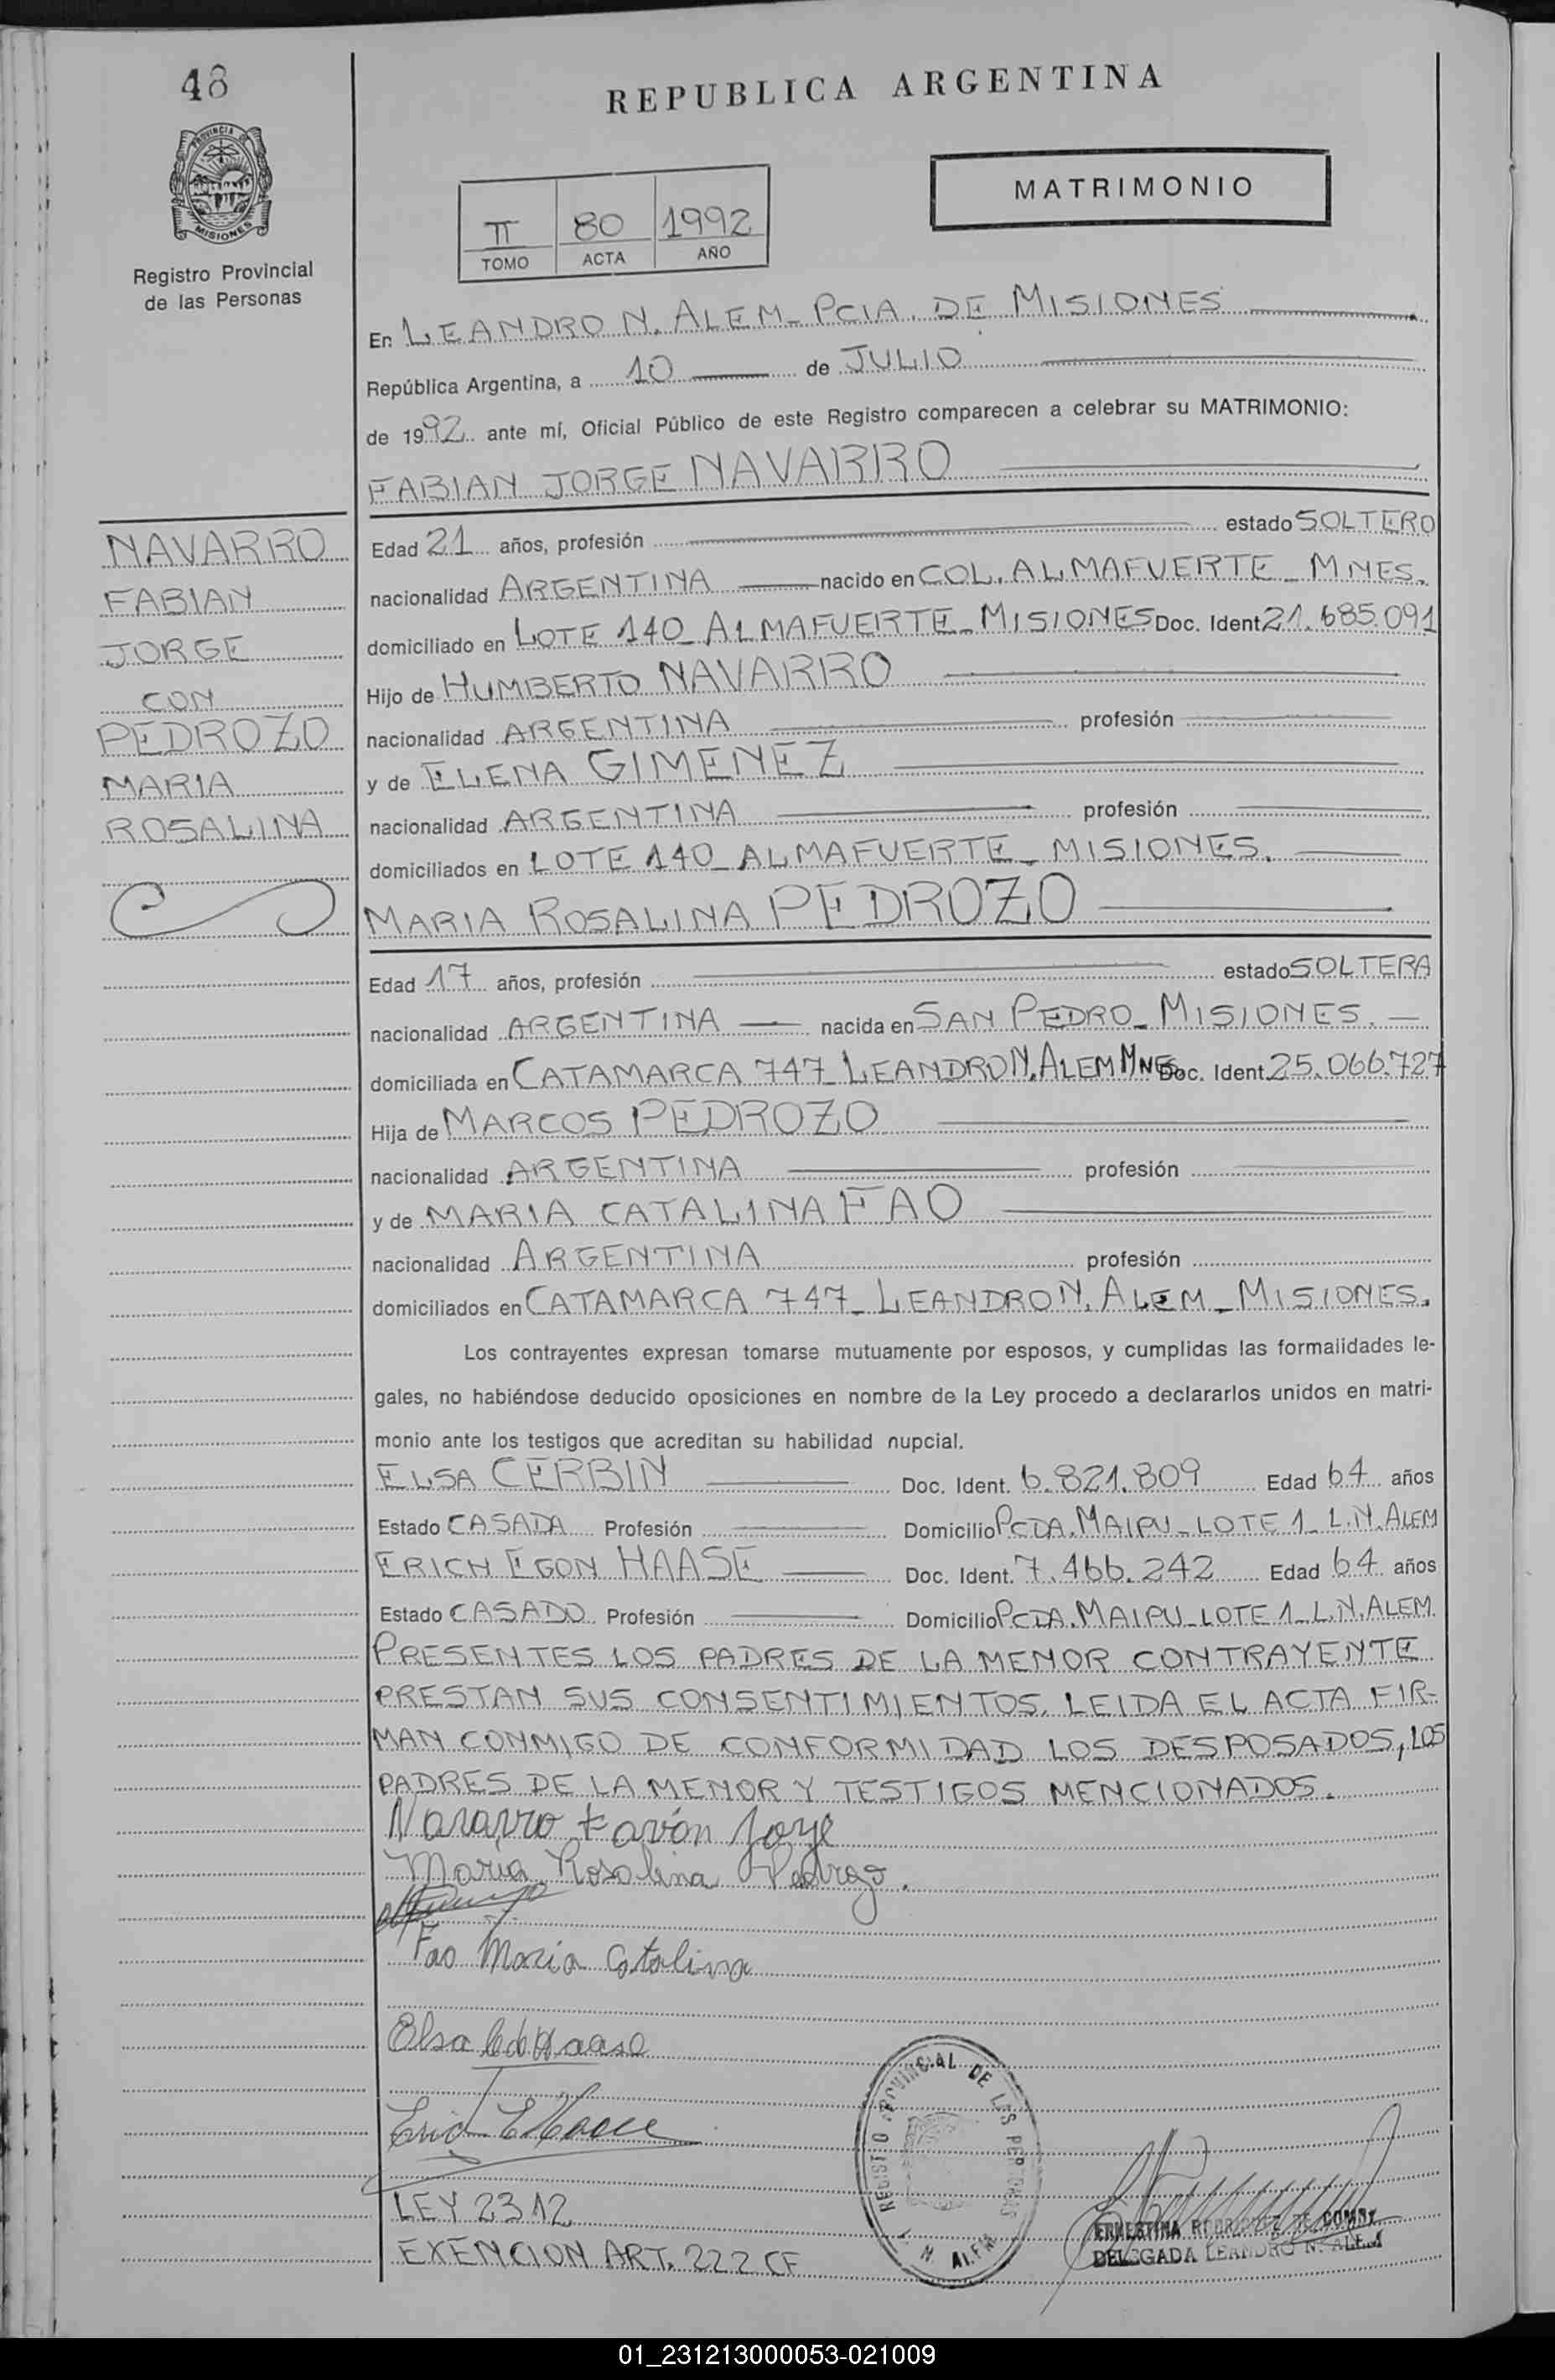 48
REPUBLICA ARGENTINA
PROVINCIA DE
MISIONES
Registro Provincial
de las Personas
MATRIMONIO
II 80 1992
TOMO ACTA AÑO
En LEANDRO N. ALEM - PCIA. DE MISIONES
República Argentina, a 10 de JULIO
de 1992 ante mí, Oficial Público de este Registro comparecen a celebrar su MATRIMONIO:
FABIAN JORGE NAVARRO
NAVARRO
FABIAN
JORGE
CON
PEDROZO
MARIA
ROSALINA
Edad 21 años, profesión estado SOLTERO
nacionalidad ARGENTINA nacido en COL. ALMAFUERTE - MNES.
domiciliado en LOTE 140 - ALMAFUERTE - MISIONES Doc. Ident 21.685.091
Hijo de HUMBERTO NAVARRO
nacionalidad ARGENTINA profesión
y de ELENA GIMENEZ
nacionalidad ARGENTINA profesión
domiciliados en LOTE 140 - ALMAFUERTE - MISIONES.
MARIA ROSALINA PEDROZO
Edad 17 años, profesión estado SOLTERA
nacionalidad ARGENTINA nacida en SAN PEDRO - MISIONES.
domiciliada en CATAMARCA 747 - LEANDRO N. ALEM MNES Doc. Ident. 25.066.727
Hija de MARCOS PEDROZO
nacionalidad ARGENTINA profesión
y de MARIA CATALINA FAO
nacionalidad ARGENTINA profesión
domiciliados en CATAMARCA 747 - LEANDRO N. ALEM - MISIONES.
Los contrayentes expresan tomarse mutuamente por esposos, y cumplidas las formalidades le-
gales, no habiéndose deducido oposiciones en nombre de la Ley procedo a declararlos unidos en matri-
monio ante los testigos que acreditan su habilidad nupcial.
ELSA CERBIN Doc. Ident. 6.821.809 Edad 64 años
Estado CASADA Profesión Domicilio PCDA. MAIPU - LOTE 1 - L.N. ALEM
ERICH EGON HAASE Doc. Ident. 7.466.242 Edad 64 años
Estado CASADO Profesión Domicilio PCDA. MAIPU - LOTE 1 - L.N. ALEM.
PRESENTES LOS PADRES DE LA MENOR CONTRAYENTE
PRESTAN SUS CONSENTIMIENTOS. LEIDA EL ACTA FIR-
MAN CONMIGO DE CONFORMIDAD LOS DESPOSADOS, LOS
PADRES DE LA MENOR Y TESTIGOS MENCIONADOS.
Navarro Favián Jorge
Maria Rosalina Pedrozo.
Fao Maria Catalina
Elsa C de Haase
Erich E Haase
REGISTRO PROVINCIAL DE LAS PERSONAS
L. N. ALEM
ERNESTINA RODRIGUEZ DE GOMEZ
DELEGADA LEANDRO N. ALEM
LEY 2312
EXENCION ART. 222 CF
01_231213000053-021009